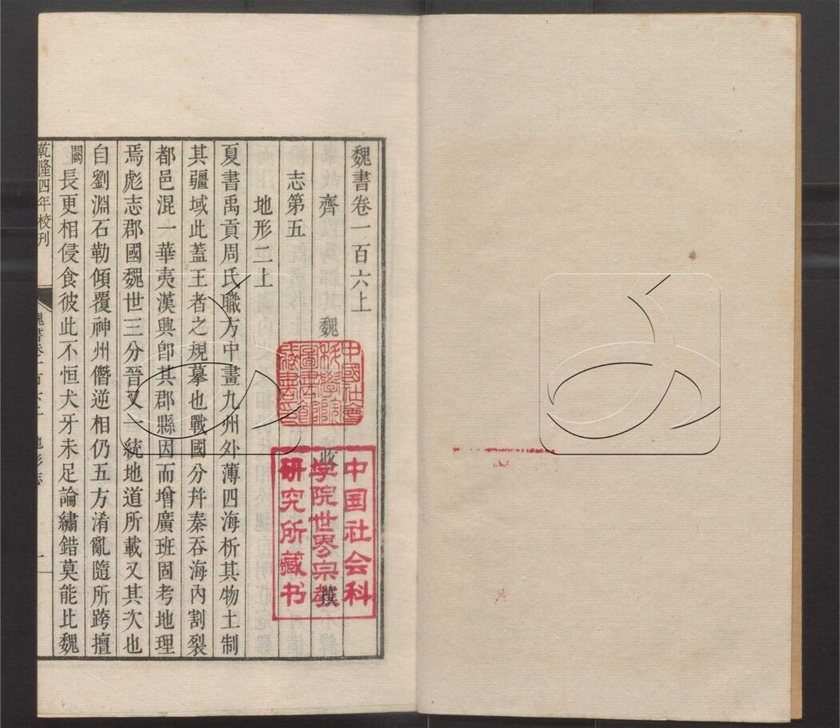 魏書卷一百六上
齊 魏 收 撰
志第五
地形二上
夏書禹貢周氏職方中畫九州外薄四海析其物土制
其疆域此蓋王者之規摹也戰國分幷秦吞海內割裂
都邑混一華夷漢興卽其郡縣因而增廣班固考地理
焉彪志郡國魏世三分晉又一統地道所載又其次也
自劉淵石勒傾覆神州僭逆相仍五方淆亂隨所跨擅
闕長更相侵食彼此不恒犬牙未足論繡錯莫能比魏
乾隆四年校刊
中國社會
科學院
圖書館
藏書印
中国社会科
学院世界宗教
研究所藏书